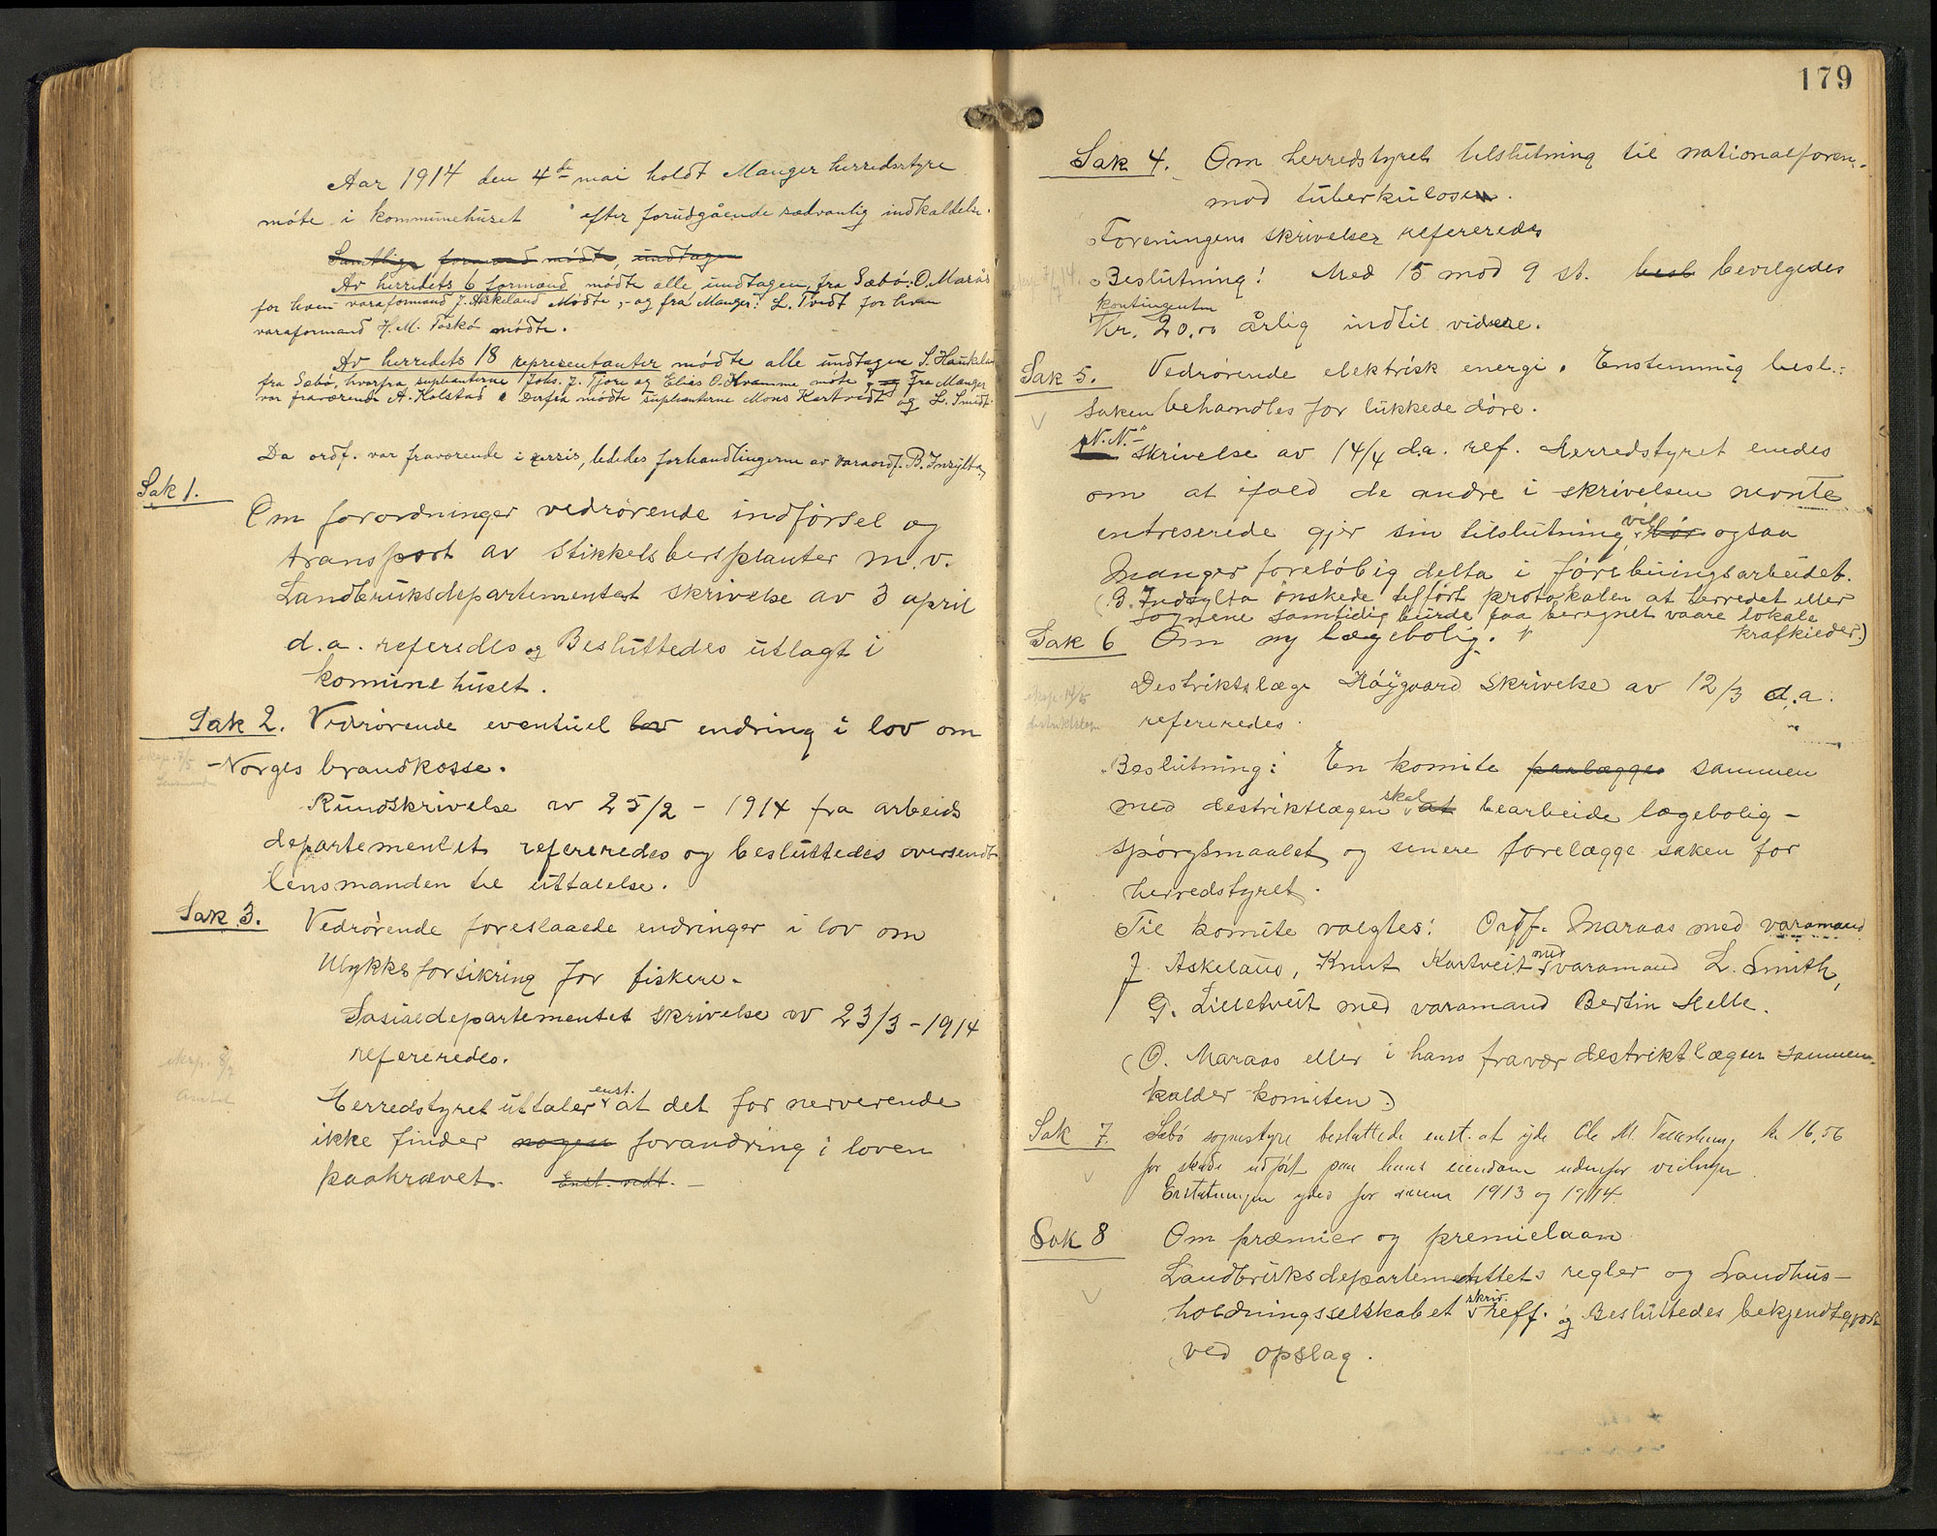 Aar 1914 den 4de mai holdt Manger herredsstyre
møte i kommunehuset efter forudgående sædvanlig indkaldelse.
Samtlige formænd mødte, undtagen
Av herredets 6 formænd mødte alle undtagen fra Sæbø: O. Marås
for hvem varaformand J. Askeland mødte, - og fra Manger: L. Tvedt for hvem
varaformand H. M. Toskø mødte.
Av herredets 18 representanter mødte alle undtagen S. Haukeland
fra Sæbø, hvorfra suplianterne Johs. J. Fjore og Elias O. Kvamme møte, og Fra Manger
var fraværende A. Kolstad. Derfra mødte suplianterne Mons Kartvedt og L. Smidt.
Da ordf. var fraværende i begyndelsen, lededes forhandlingerne av varaordf. B. Indsylta
Sak 1.
Om forordninger vedrørende indførsel og
transport av stikkelsbersplanter m.v.
Landbruksdepartementet skrivelse av 3 april
d.a. referedes og Besluttedes utlagt i
komunehuset.
Sak 2. Vedrørende eventuel lov endring i lov om
Norges brandkasse.
Rundskrivelse av 25/2 - 1914 fra arbeids
departementet refereredes og besluttedes oversendt
lensmanden til uttalelse.
Sak 3. Vedrørende foreslaaede endringer i lov om
Ulykksforsikring for fiskere.
Sosialdepartementet skrivelse av 23/3 - 1914
refereredes.
eksp. 8/7
Amtet
Herredstyret uttaler enst. at det for nerverende
ikke finder nogen forandring i loven
paakrævet. Enst. vedt. -
179
Sak 4. Om herredstyrets tilslutning til nationalforen.
mod tuberkulosen.
Foreningens skrivelser refereredes
Beslutning: Med 15 mod 9 st. besl bevilgedes
kontingenten
Kr. 20.00 årlig indtil videre.
Sak 5. Vedrørende elektrisk energi. Enstemmig besl.:
Saken behandles for lukkede døre.
"N.N."
skrivelse av 14/4 d.a. ref. Herredstyret enedes
om at ifald de andre i skrivelsen nevnte
entreserede gjør sin tilslutning, vil bør ogsaa
Manger foreløbig delta i førebuingsarbeidet.
(B. Indsylta ønskede tilført protokolen at herredet eller
sognene samtidig burde faa beregnet vaare lokale
krafkieder.)
Sak 6 Om ny lægebolig.
Destriktslæge Høygaard skrivelse av 12/3 d.a.
refereredes.
Beslutning: En komite paalægges sammen
med destriktlægen skal at bearbeide lægebolig-
spørgsmaalet og senere forelægge saken for
herredstyret.
Til komite valgtes: Ordf. Maraas med varamand
J. Askeland, Knut Kartveit med varamand L. Smith,
G. Lilletveit med varamand Bertin Helle.
(O. Maraas eller i hans fravær destriktlægen sammen-
kalder komiten)
Sak 7. Sæbø sognestyre besluttede enst. at yde Ole M. kr 16,56
for skade udført paa hans eiendom udenfor veilinjen.
Erstatningen ydes for aarene 1913 og 1914.
Sak 8 Om præmier og premielaan
Landbruksdepartementtets regler og Landhus-
holdningsselskabet skriv. reff. og Besluttedes bekjendtgjort
ved opslag.